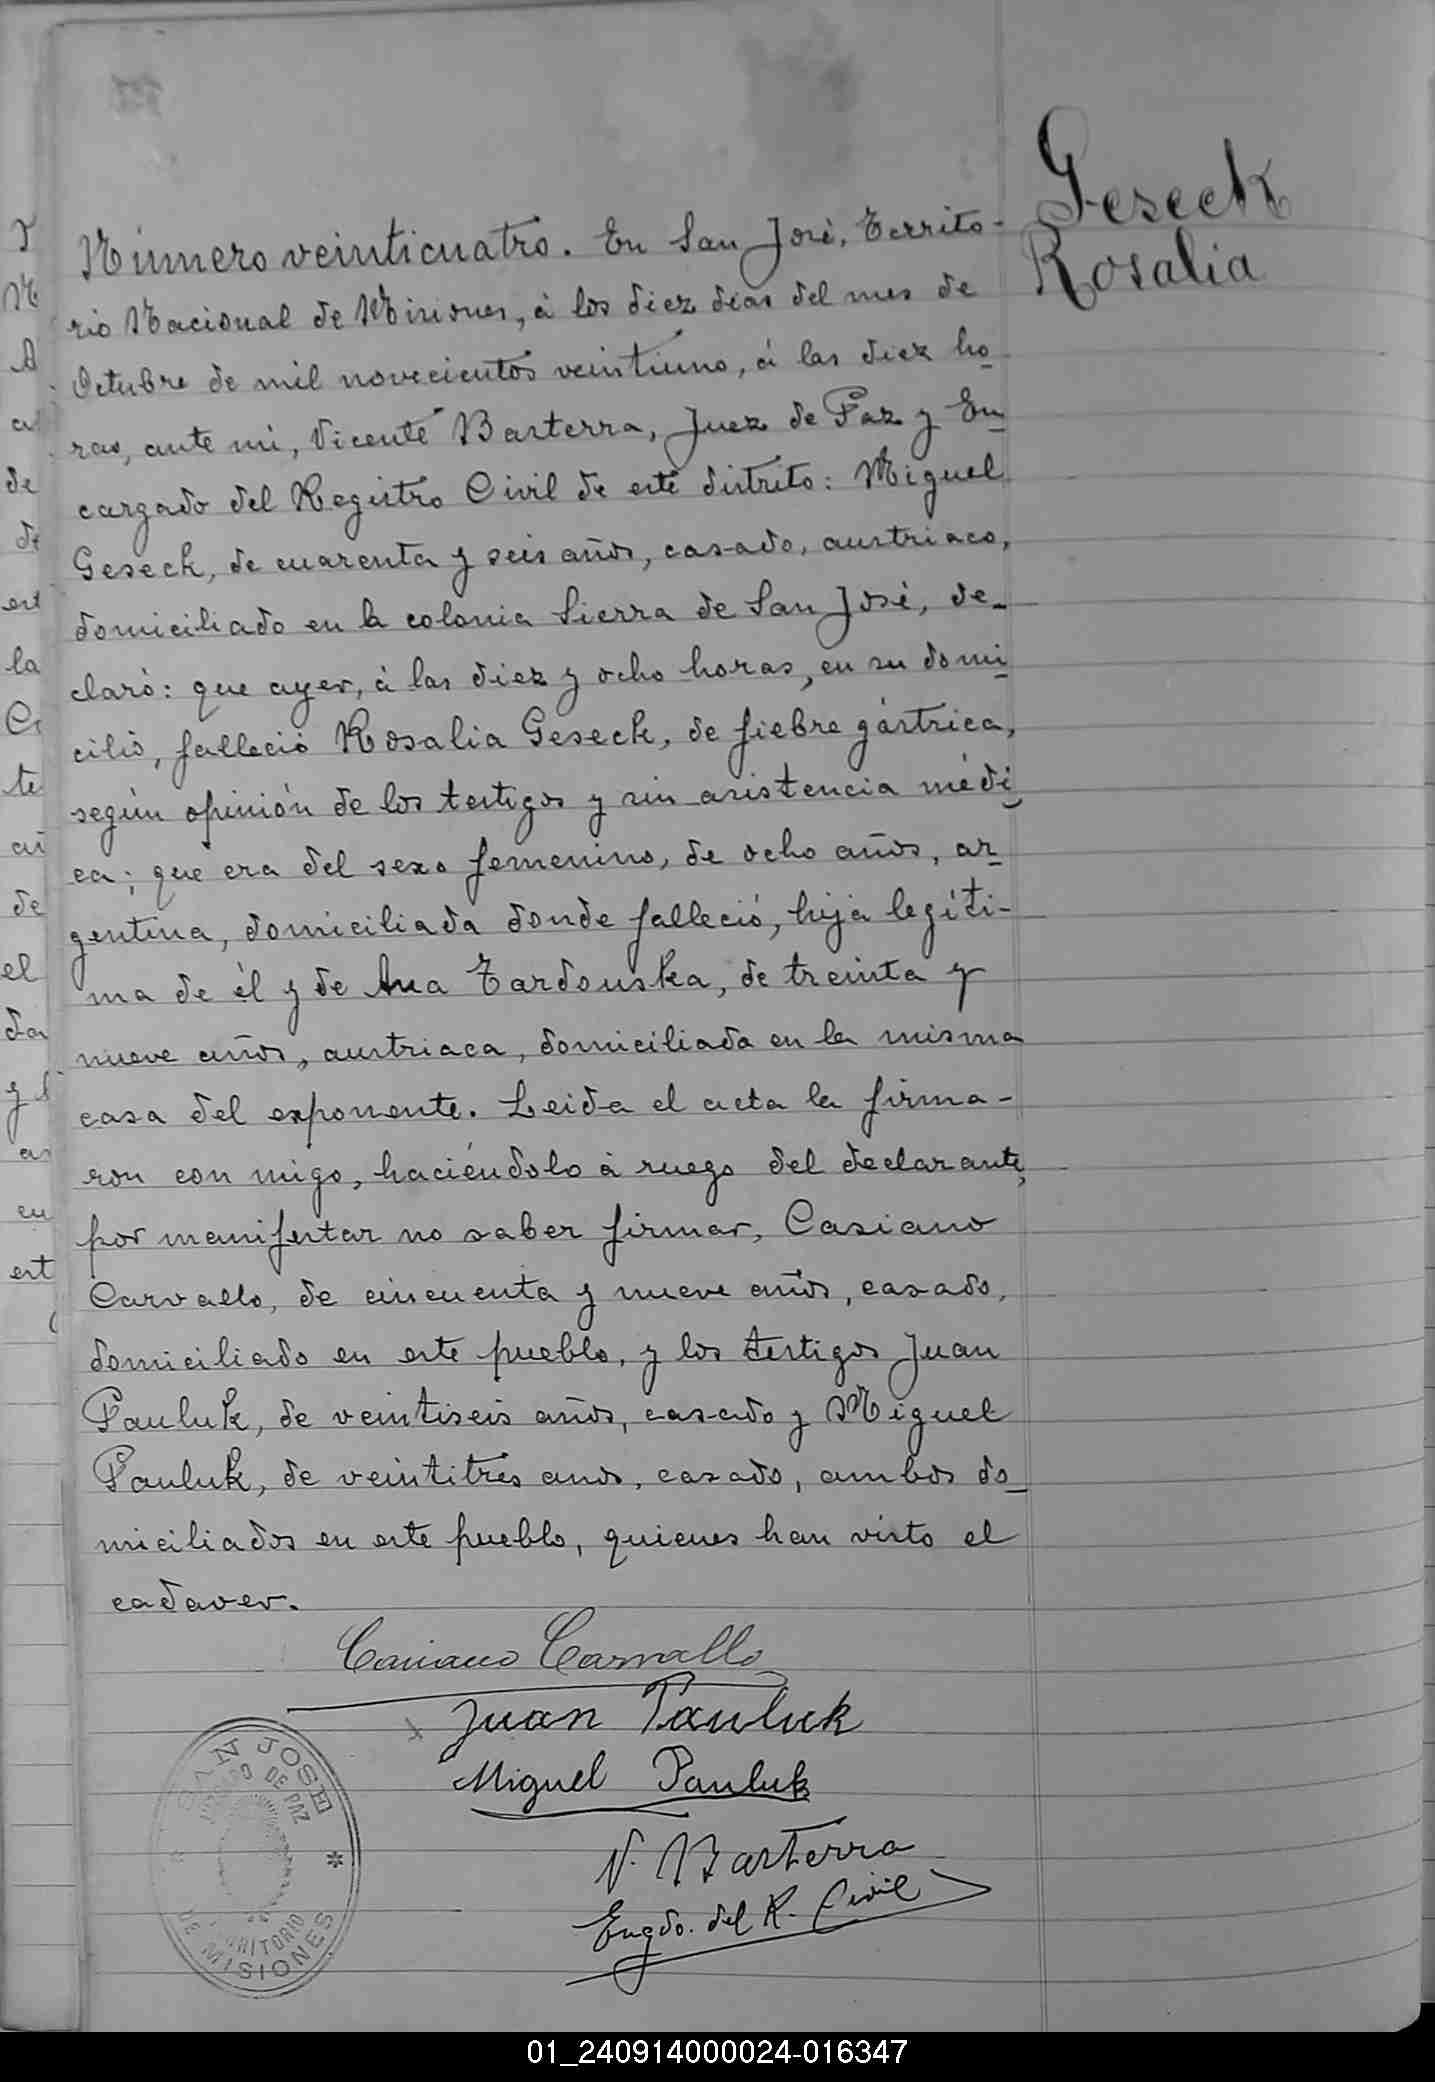 Geseck
Rosalia
Número veinticuatro. En San José, Territo-
rio Nacional de Misiones, á los diez dias del mes de
Octubre de mil novecientos veintiuno, á las diez ho-
ras, ante mi, Vicente Basterra, Juez de Paz y En-
cargado del Registro Civil de este distrito: Miguel
Geseck, de cuarenta y seis años, casado, austriaco,
domiciliado en la colonia Sierra de San José, de-
claró: que ayer, á las diez y ocho horas, en su domi-
cilio, falleció Rosalia Geseck, de fiebre gástrica,
según opinión de los testigos y sin asistencia médi-
ca; que era del sexo femenino, de ocho años, ar-
gentina, domiciliada donde falleció, hija legíti-
ma de él y de Ana Tardouska, de treinta y
nueve años, austriaca, domiciliada en la misma
casa del exponente. Leida el acta la firma-
ron con migo, haciéndolo á ruego del declarante,
por manifestar no saber firmar, Casiano
Carvallo, de cincuenta y nueve años, casado,
domiciliado en este pueblo, y los testigos Juan
Pauluk, de veintiseis años, casado y Miguel
Pauluk, de veintitrés anos, casado, ambos do-
miciliados en este pueblo, quienes han visto el
cadaver.
Casiano Carvallo
Juan Pauluk
Miguel Pauluk
V. Basterra
Engdo. del R. Civil
SAN JOSE
JUZGADO DE PAZ
TERRITORIO
DE MISIONES
01_240914000024-016347